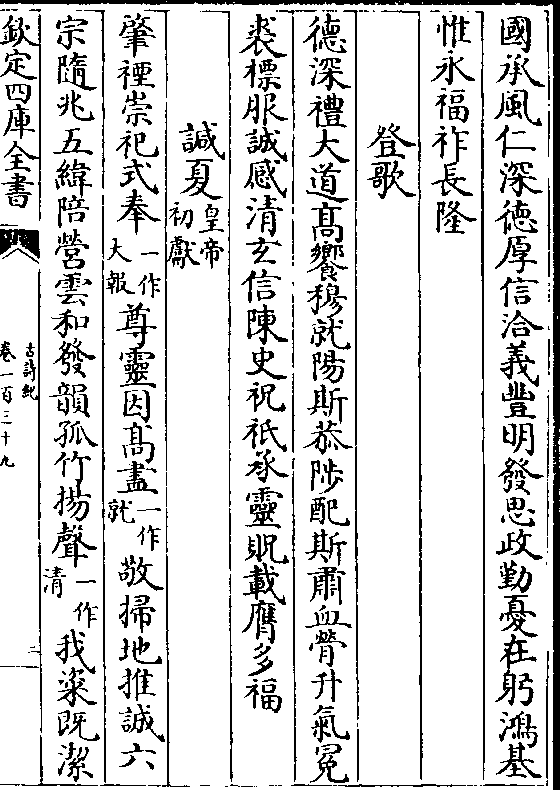 國承風仁深徳厚信洽義豐明發思政勤憂在躬鴻基
惟永福祚長隆
登歌
德深禮大道髙饗穆就陽斯恭陟配斯肅血膋升氣冕
裘標服誠感清玄信陳史祝祇承靈貺載膺多福
諴夏皇帝初獻
肇禋崇祀式奉一作大報尊靈因髙盡一作就敬掃地推誠六
宗隨兆五緯陪營雲和發韻孤竹揚聲一作清我粢既潔
欽定四庫全書
古詩紀
卷一百三十九
二